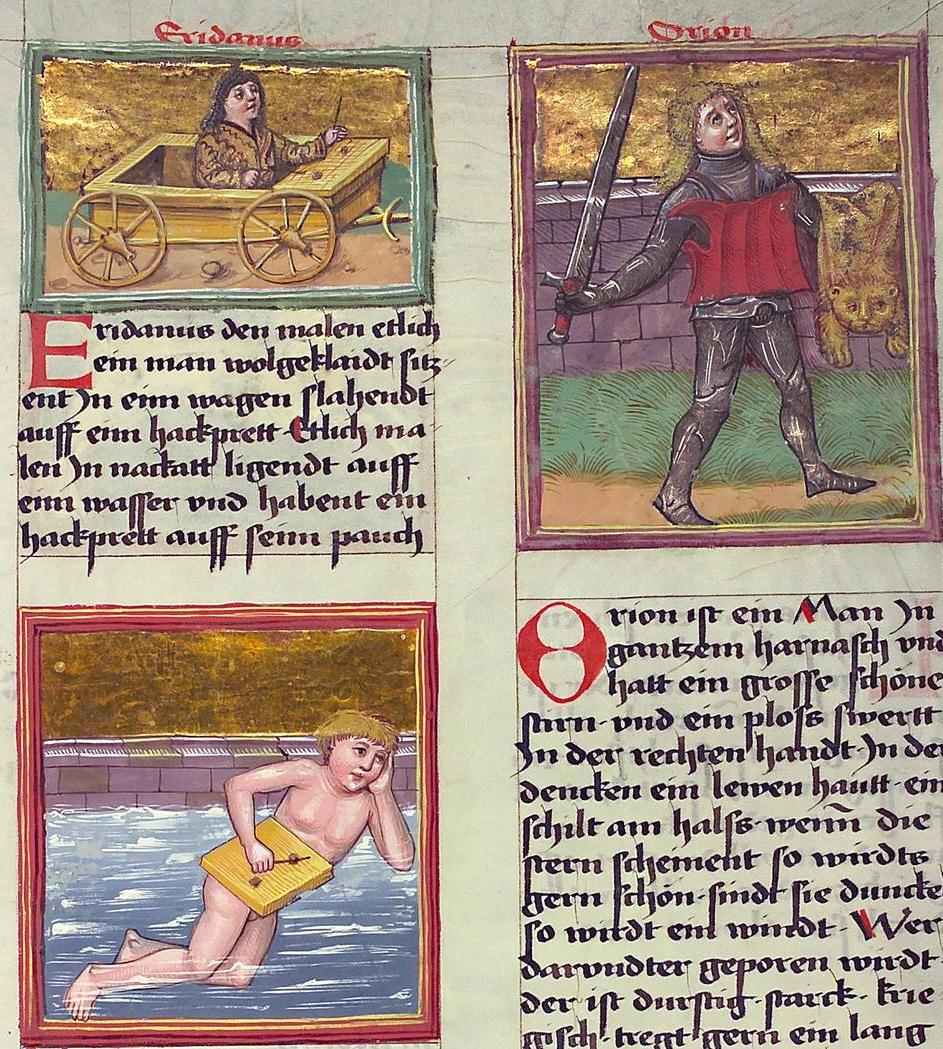 Eridanus
Eridanus den malen etlich
ein man wolgeklaidt sitz
ent Jn eim wagen slahendt
auff eim hackprett Etlich ma
len Jn nackatt ligendt auff
eim wasser vnd habent ein
hackprett auff seim pauch
Orion
Orion ist ein Man Jn
gantzem harnasch vnd
hatt ein grosse schöne
stirn vnd ein ploss swertt
Jn der rechten handt Jn der
dencken ein lewen hautt ein
schilt am halss wenn̄ die
stern schement so wirdts
gern schön sindt sie duncke
so wirdt ein windt Wer
darvndter geporen wirdt
der ist durstig starck krie
gisch tregt gern ein lang